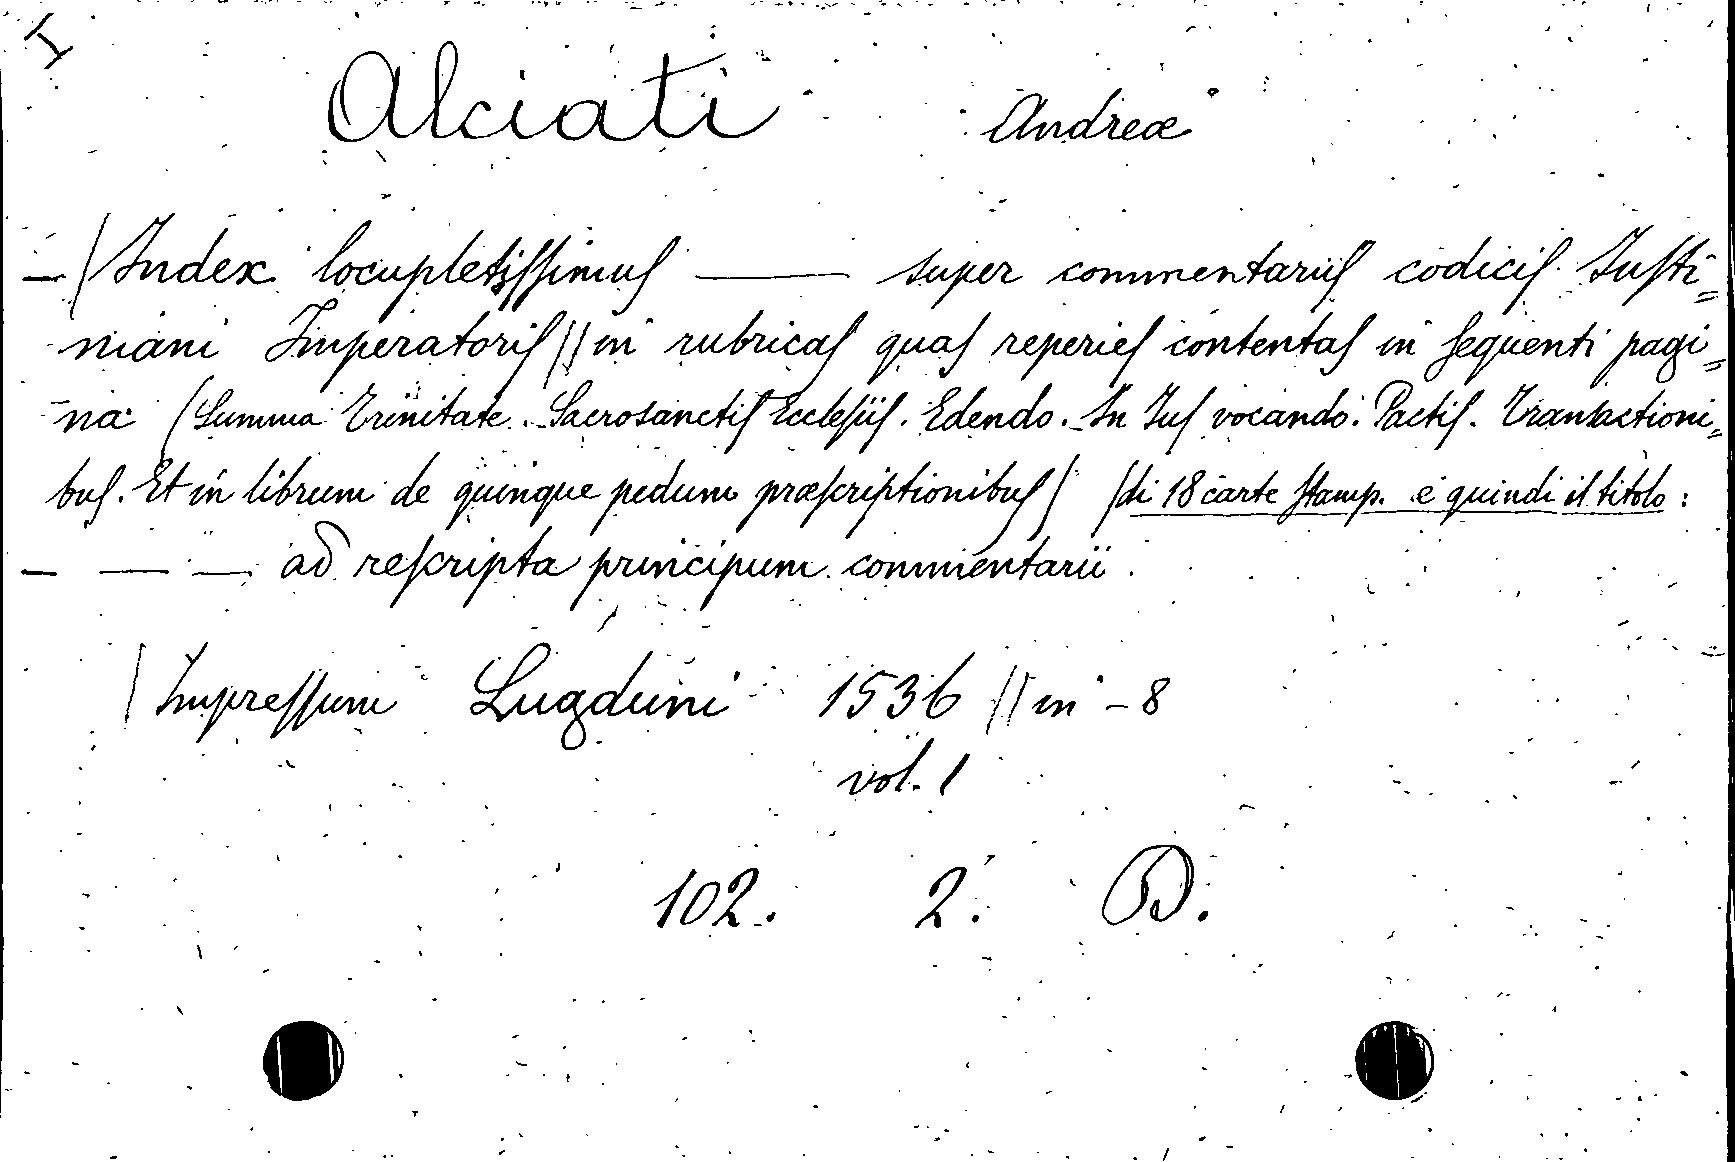 I
Alciati Andreæ
— / Index locupletiſſimuſ —— super commentariiſ codiciſ Iuſti=
niani Imperatoriſ // in rubricaſ quaſ reperieſ contentaſ in ſequenti pagi=
na (Summa Trinitate. Sacrosanctiſ Eccleſiiſ. Edendo. In Iuſ vocando. Pactiſ. Transactioni=
buſ. Et in librum de quinque pedum præſcriptionibuſ) (di 18 carte ſtamp. e quindi il titolo:
— — — ad reſcripta principum commentarii.
/ Impreſſum Lugduni 1536 // in-8
vol. 1
102. 2. D.